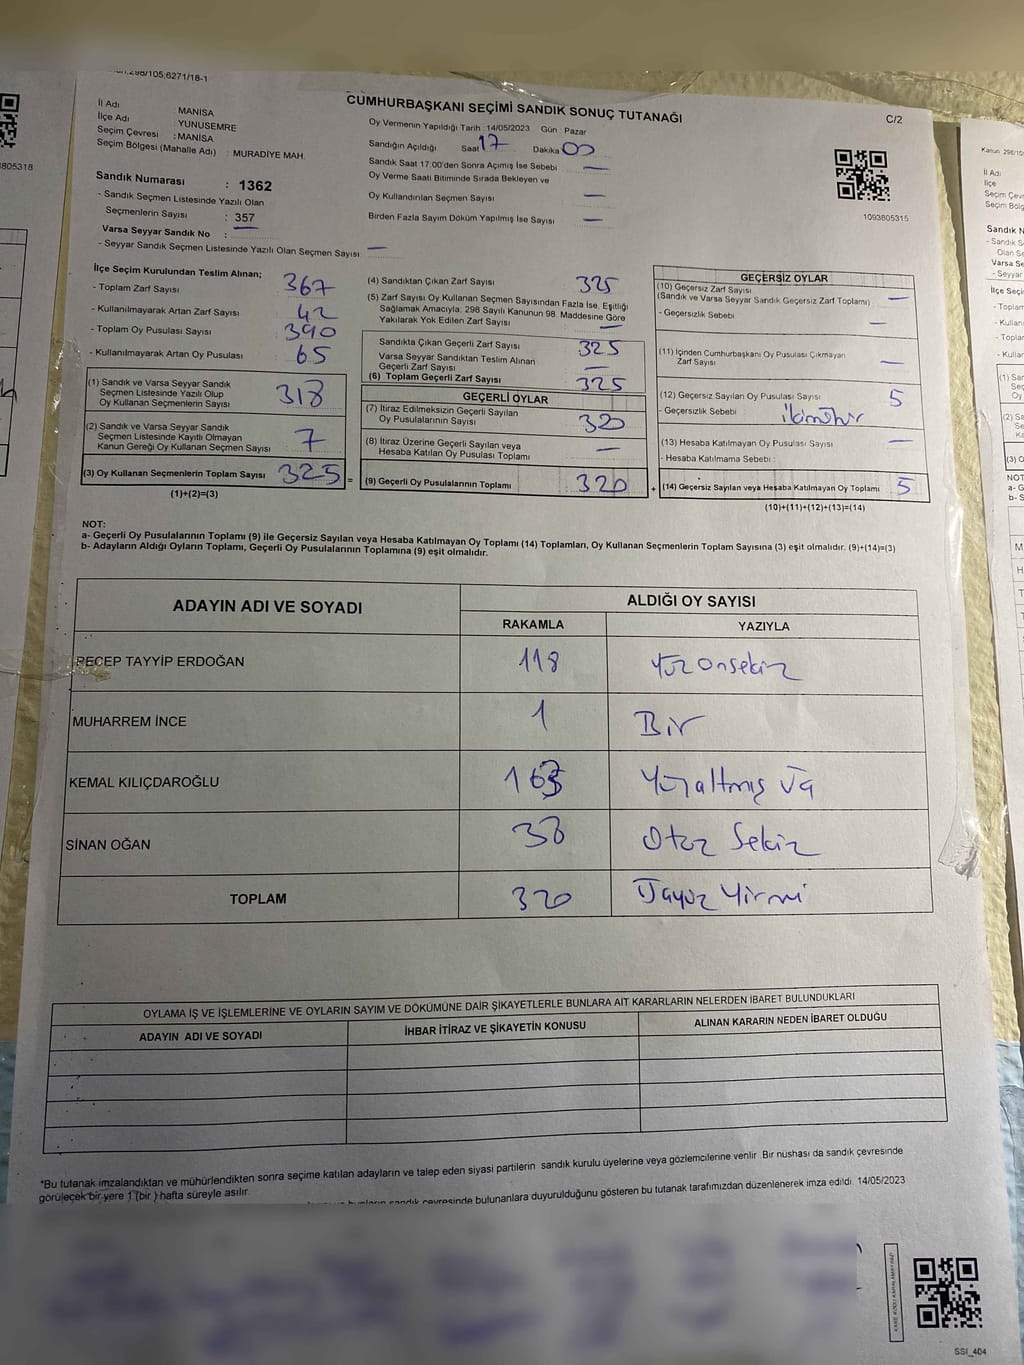 298/105;6271/18-1
CUMHURBAŞKANI SEÇİMİ SANDIK SONUÇ TUTANAĞI
C/2
İl Adı MANİSA
İlçe Adı YUNUSEMRE
Seçim Çevresi : MANİSA
Seçim Bölgesi (Mahalle Adı) : MURADİYE MAH.
Oy Vermenin Yapıldığı Tarih : 14/05/2023 Gün : Pazar
Sandığın Açıldığı Saat 17 Dakika 00
Sandık Saat 17.00'den Sonra Açımış İse Sebebi —
Oy Verme Saati Bitiminde Sırada Bekleyen ve
Oy Kullandırılan Seçmen Sayısı —
Birden Fazla Sayım Döküm Yapılmış İse Sayısı —
1093805315
Sandık Numarası : 1362
- Sandık Seçmen Listesinde Yazılı Olan
Seçmenlerin Sayısı : 357
Varsa Seyyar Sandık No : —
- Seyyar Sandık Seçmen Listesinde Yazılı Olan Seçmen Sayısı —
İlçe Seçim Kurulundan Teslim Alınan;
- Toplam Zarf Sayısı 367
- Kullanılmayarak Artan Zarf Sayısı 42
- Toplam Oy Pusulası Sayısı 390
- Kullanılmayarak Artan Oy Pusulası 65
(1) Sandık ve Varsa Seyyar Sandık
Seçmen Listesinde Yazılı Olup
Oy Kullanan Seçmenlerin Sayısı 318
(2) Sandık ve Varsa Seyyar Sandık
Seçmen Listesinde Kayıtlı Olmayan
Kanun Gereği Oy Kullanan Seçmen Sayısı 7
(3) Oy Kullanan Seçmenlerin Toplam Sayısı 325 =
(1)+(2)=(3)
(4) Sandıktan Çıkan Zarf Sayısı 325
(5) Zarf Sayısı Oy Kullanan Seçmen Sayısından Fazla İse, Eşitliği
Sağlamak Amacıyla; 298 Sayılı Kanunun 98. Maddesine Göre
Yakılarak Yok Edilen Zarf Sayısı —
Sandıkta Çıkan Geçerli Zarf Sayısı 325
Varsa Seyyar Sandıktan Teslim Alınan
Geçerli Zarf Sayısı —
(6) Toplam Geçerli Zarf Sayısı 325
GEÇERLİ OYLAR
(7) İtiraz Edilmeksizin Geçerli Sayılan
Oy Pusulalarının Sayısı 320
(8) İtiraz Üzerine Geçerli Sayılan veya
Hesaba Katılan Oy Pusulası Toplamı —
(9) Geçerli Oy Pusulalarının Toplamı 320 +
GEÇERSİZ OYLAR
(10) Geçersiz Zarf Sayısı
(Sandık ve Varsa Seyyar Sandık Geçersiz Zarf Toplamı) —
- Geçersizlik Sebebi —
(11) İçinden Cumhurbaşkanı Oy Pusulası Çıkmayan
Zarf Sayısı —
(12) Geçersiz Sayılan Oy Pusulası Sayısı 5
- Geçersizlik Sebebi iki mühür
(13) Hesaba Katılmayan Oy Pusulası Sayısı —
- Hesaba Katılmama Sebebi :
(14) Geçersiz Sayılan veya Hesaba Katılmayan Oy Toplamı 5
(10)+(11)+(12)+(13)=(14)
NOT:
a- Geçerli Oy Pusulalarının Toplamı (9) ile Geçersiz Sayılan veya Hesaba Katılmayan Oy Toplamı (14) Toplamları, Oy Kullanan Seçmenlerin Toplam Sayısına (3) eşit olmalıdır. (9)+(14)=(3)
b- Adayların Aldığı Oyların Toplamı, Geçerli Oy Pusulalarının Toplamına (9) eşit olmalıdır.
ADAYIN ADI VE SOYADI ALDIĞI OY SAYISI
RAKAMLA YAZIYLA
RECEP TAYYİP ERDOĞAN 118 Yüz onsekiz
MUHARREM İNCE 1 Bir
KEMAL KILIÇDAROĞLU 163 Yüzaltmış üç
SİNAN OĞAN 38 Otuz Sekiz
TOPLAM 320 Üçyüz Yirmi
OYLAMA İŞ VE İŞLEMLERİNE VE OYLARIN SAYIM VE DÖKÜMÜNE DAİR ŞİKAYETLERLE BUNLARA AİT KARARLARIN NELERDEN İBARET BULUNDUKLARI
ADAYIN ADI VE SOYADI İHBAR İTİRAZ VE ŞİKAYETİN KONUSU ALINAN KARARIN NEDEN İBARET OLDUĞU
*Bu tutanak imzalandıktan ve mühürlendikten sonra seçime katılan adayların ve talep eden siyasi partilerin sandık kurulu üyelerine veya gözlemcilerine verilir. Bir nüshası da sandık çevresinde
görülecek bir yere 1 (bir ) hafta süreyle asılır.
sandık çevresinde bulunanlara duyurulduğunu gösteren bu tutanak tarafımızdan düzenlenerek imza edildi. 14/05/2023
SSI_404
805318
Kanun 298/10
İl Adı
İlçe
Seçim Çev
Seçim Bölg
Sandık N
- Sandık S
Olan Se
Varsa Se
- Seyyar
İlçe Seçi
- Toplam
- Kullanı
- Toplar
- Kullan
(1) Sar
Seç
Oy
(2) Sa
Se
Ka
(3) O
NOT
a- G
b- S